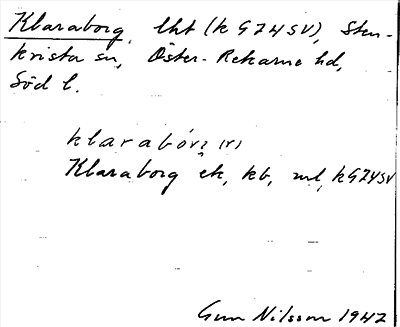 Klaraborg, lht (k GZ4SV), Sten-
krista sn, Öster-Rekarne hd,
Söd l.
klarabórj (r)
Klaraborg ek, kb, ml, kGZ4SV
Gun Nilsson 1947